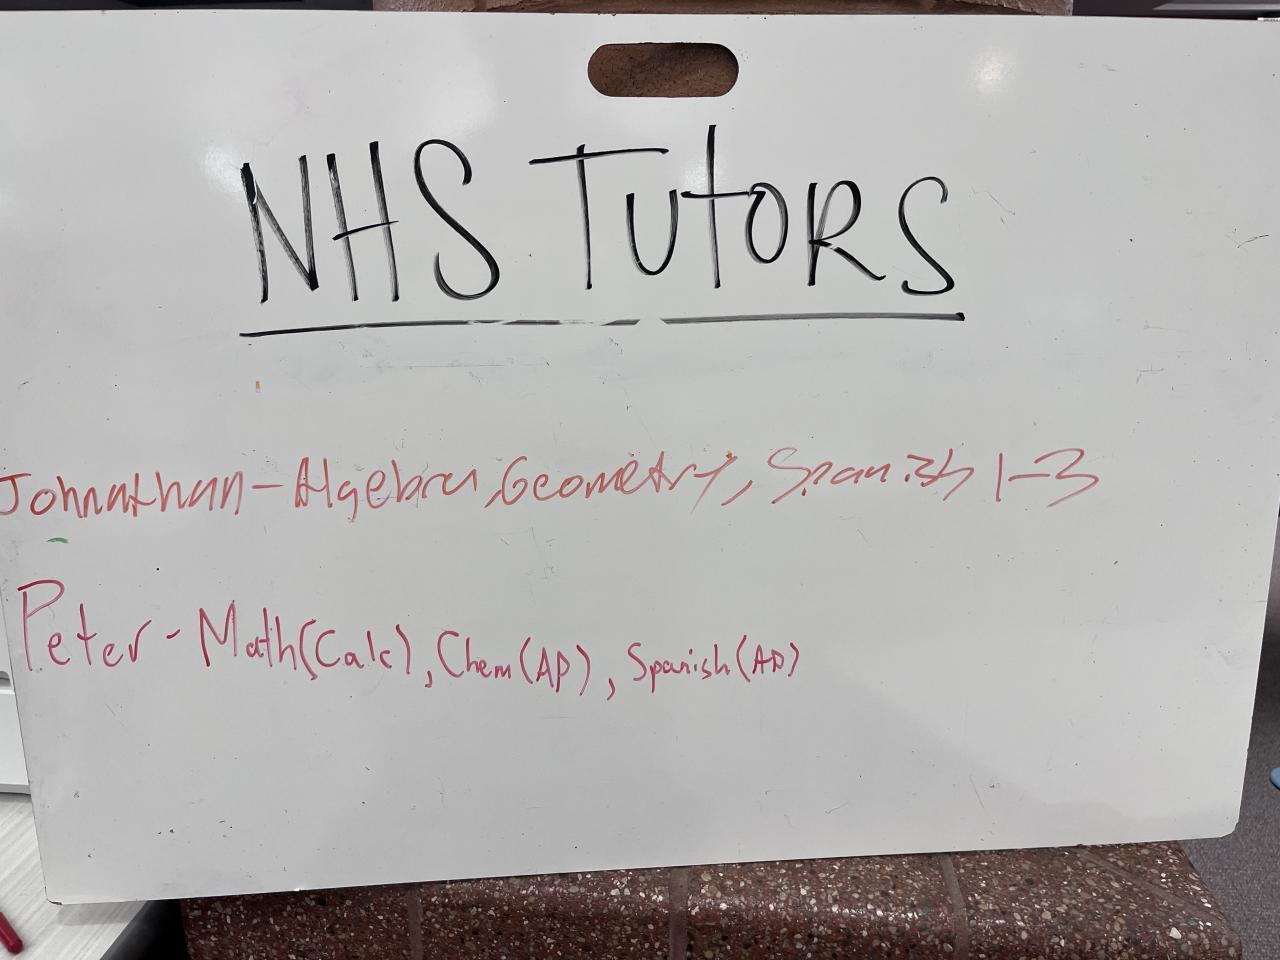 NHS Tutors
Johnathan - Algebra, Geometry, Spanish 1-3
Peter - Math(Calc), Chem(AP), Spanish(AP)